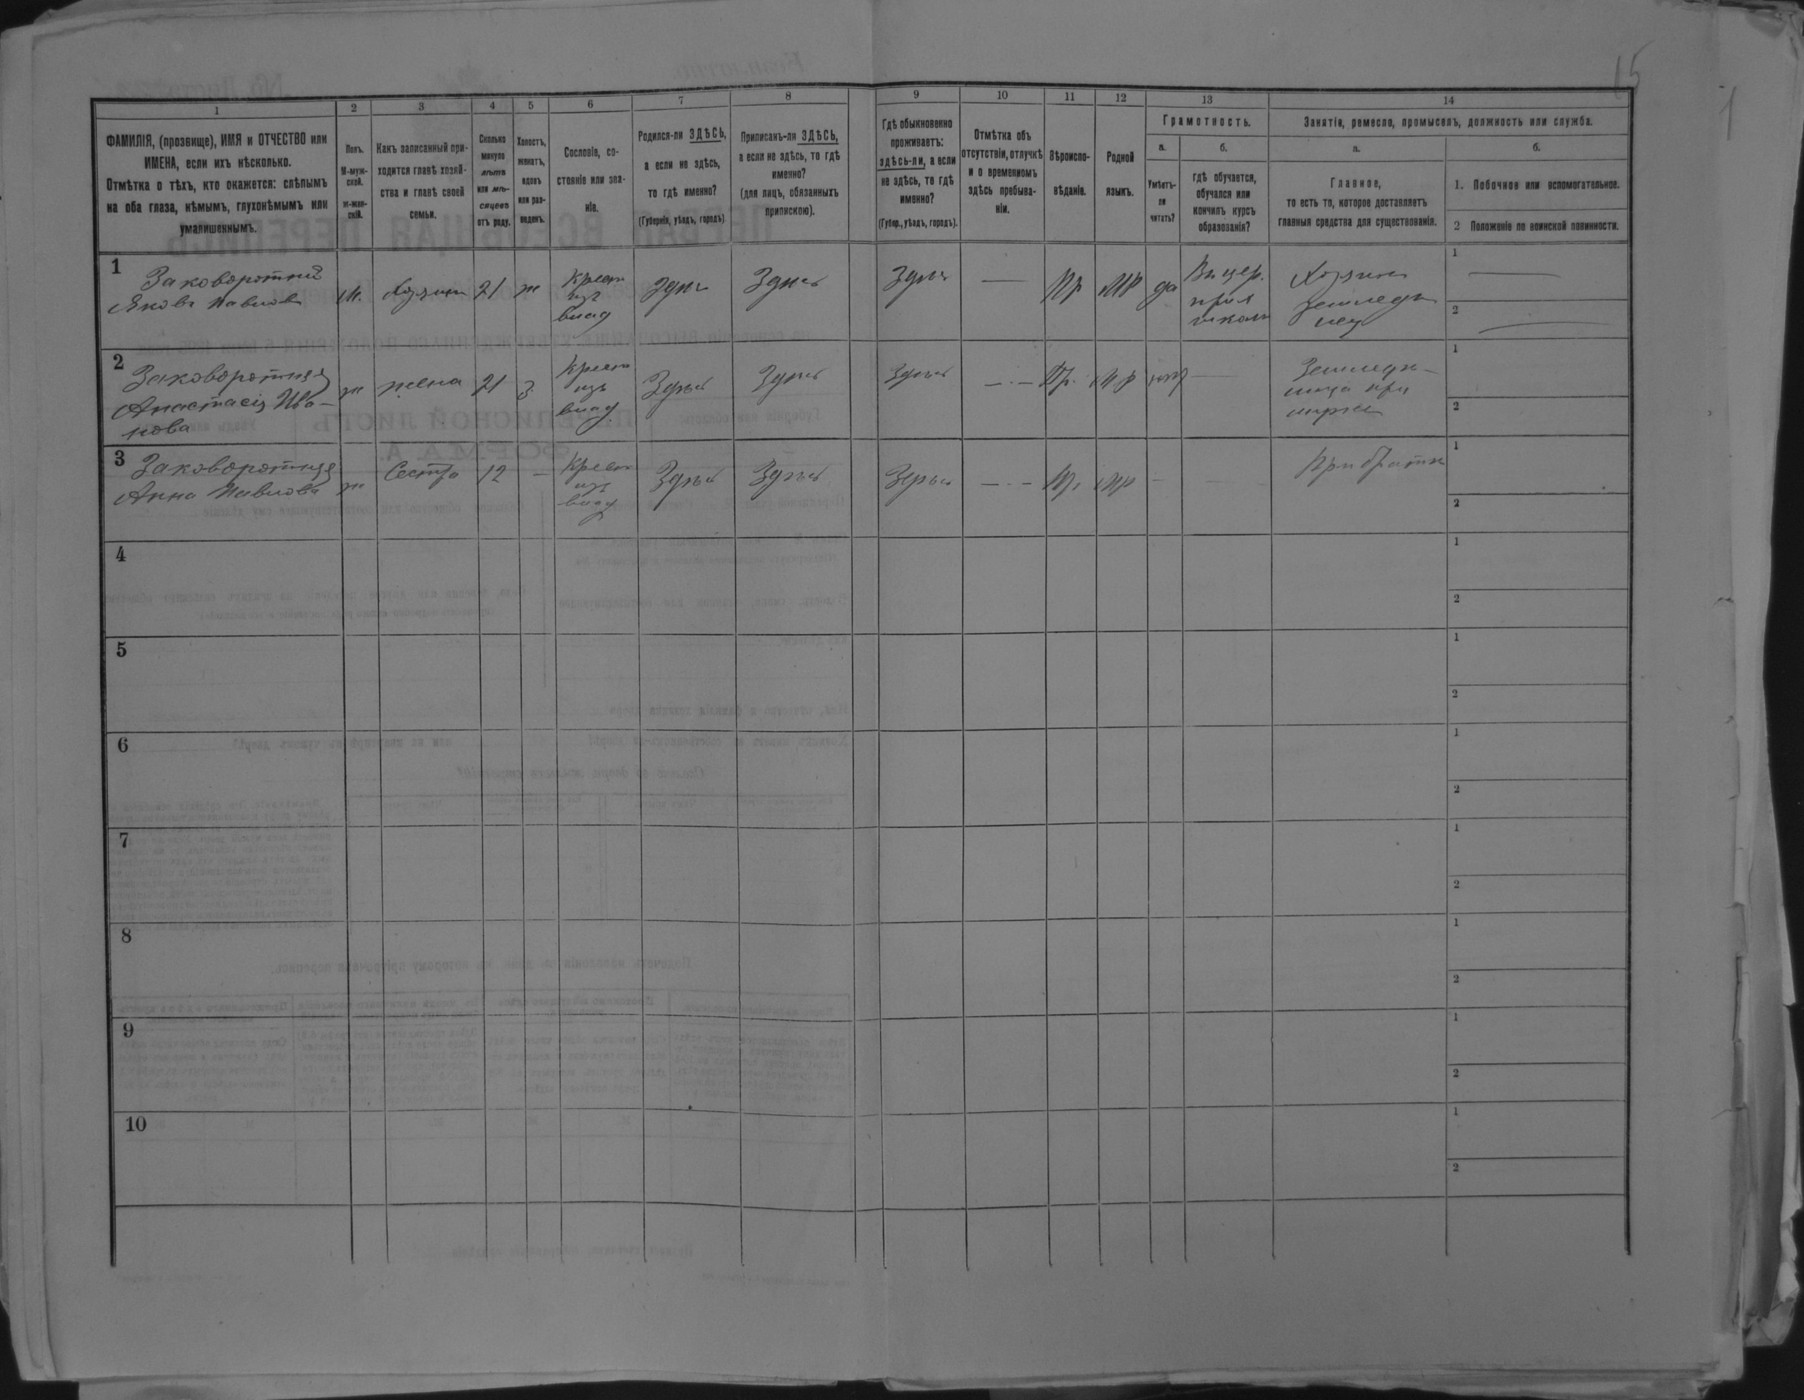 15
1 2 3 4 5 6 7 8 9 10 11 12 13 14
ФАМИЛІЯ, (прозвище), ИМЯ и ОТЧЕСТВО или
ИМЕНА, если ихъ нѣсколько.
Отмѣтка о тѣхъ, кто окажется: слѣпымъ
на оба глаза, нѣмымъ, глухонѣмымъ или
умалишеннымъ.
Полъ.
М-муж-
ской.
Ж-жен-
скій.
Какъ записанный при-
ходится главѣ хозяй-
ства и главѣ своей
семьи.
Сколько
минуло
лѣтъ
или мѣ-
сяцевъ
отъ роду.
Холостъ,
женатъ,
вдовъ
или раз-
веденъ.
Сословіе, со-
стояніе или зва-
ніе.
Родился-ли ЗДѢСЬ,
а если не здѣсь,
то гдѣ именно?
(Губернія, уѣздъ, городъ).
Приписанъ-ли ЗДѢСЬ,
а если не здѣсь, то гдѣ
именно?
(для лицъ, обязанныхъ
припискою).
Гдѣ обыкновенно
проживаетъ:
здѣсь-ли, а если
не здѣсь, то гдѣ
именно?
(Губер., уѣздъ, городъ).
Отмѣтка объ
отсутствіи, отлучкѣ
и о временномъ
здѣсь пребыва-
ніи.
Вѣроиспо-
вѣданіе.
Родной
языкъ.
Грамотность.
а.
Умѣетъ-
ли
читать?
б.
гдѣ обучается,
обучался или
кончилъ курсъ
образованія?
Занятіе, ремесло, промыселъ, должность или служба.
а.
Главное,
то есть то, которое доставляетъ
главныя средства для существованія.
б.
1. Побочное или вспомогательное.
2 Положеніе по воинской повинности.
1
Заковоротній
Яковъ Павловъ
м.
Хозяинъ
21
ж
Крест
изъ
влад
Здѣсь
Здѣсь
Здѣсь
—
Пр
МР
да
Въ цер.
прих
школѣ
Хозяинъ
земледѣ
лец
1
—
2
—
2
Заковоротняя
Анастасія Ива-
нова
ж
жена
21
з
Крест
изъ
влад
Здѣсь
Здѣсь
Здѣсь
—·—
Пр.
МР
нѣт
—
Земледѣ-
лица при
мужѣ
1
2
3
Заковоротняя
Анна Павлова
ж
Сестра
12
—
Крест
изъ
влад
Здѣсь
Здѣсь
Здѣсь
—·—
Пр.
МР
—
—
При братѣ
1
2
4
1
2
5
1
2
6
1
2
7
1
2
8
1
2
9
1
2
10
1
2